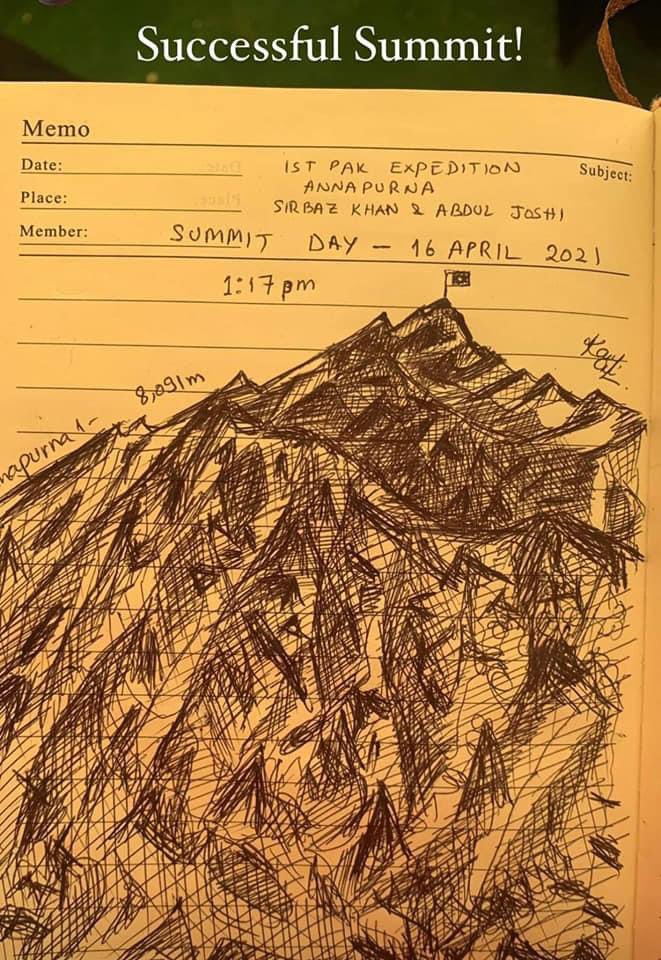 Successful Summit!
Memo
Date:
1ST PAK EXPEDITION
Subject:
ANNAPURNA
Place:
SIRBAZ KHAN & ABDUL JOSHI
Member:
SUMMIT DAY - 16 APRIL 2021
1:17 pm
8,091m
napurna 1-